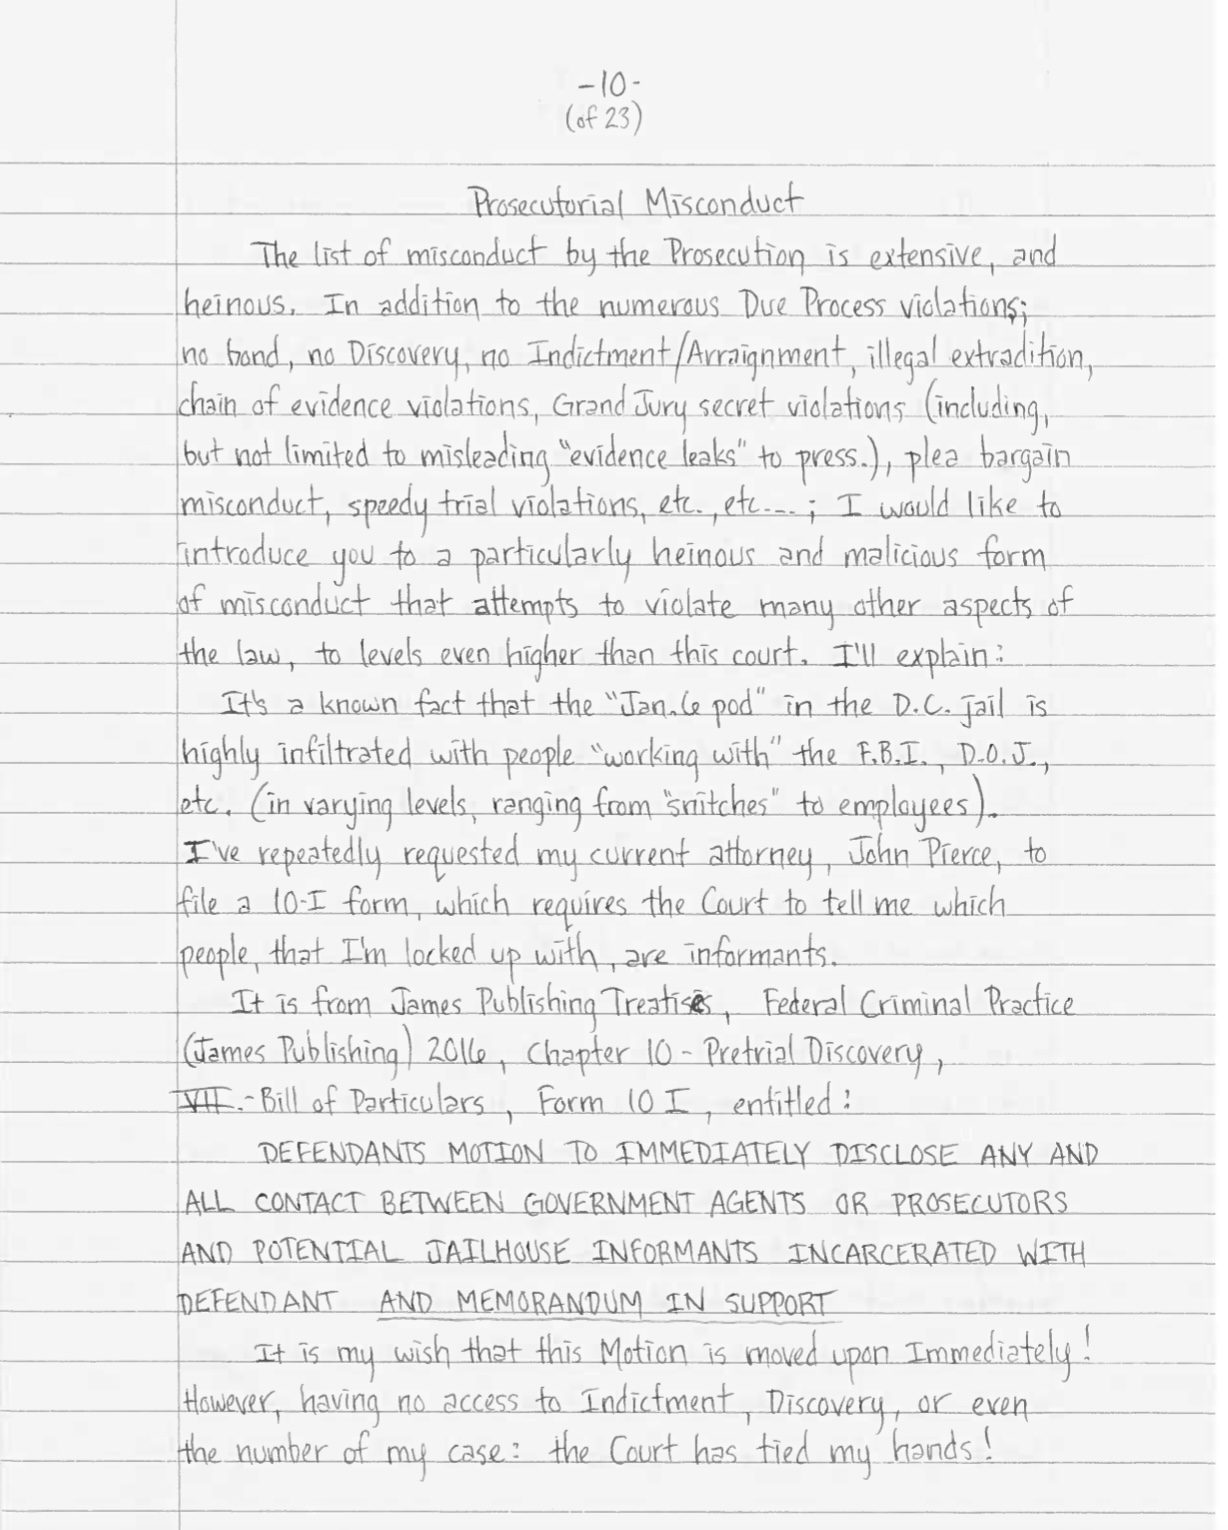 -10-
(of 23)
Prosecutorial Misconduct
The list of misconduct by the Prosecution is extensive, and
heinous. In addition to the numerous Due Process violations;
no bond, no Discovery, no Indictment/Arraignment, illegal extradition,
chain of evidence violations, Grand Jury secret violations (including,
but not limited to misleading "evidence leaks" to press.), plea bargain
misconduct, speedy trial violations, etc., etc...; I would like to
introduce you to a particularly heinous and malicious form
of misconduct that attempts to violate many other aspects of
the law, to levels even higher than this court. I'll explain:
It's a known fact that the "Jan.6 pod" in the D.C. jail is
highly infiltrated with people "working with" the F.B.I., D.O.J.,
etc. (in varying levels, ranging from "snitches" to employees).
I've repeatedly requested my current attorney, John Pierce, to
file a 10-I form, which requires the Court to tell me which
people, that I'm locked up with, are informants.
It is from James Publishing Treatises, Federal Criminal Practice
(James Publishing) 2016, Chapter 10 - Pretrial Discovery,
VII.-Bill of Particulars, Form 10 I, entitled:
DEFENDANTS MOTION TO IMMEDIATELY DISCLOSE ANY AND
ALL CONTACT BETWEEN GOVERNMENT AGENTS OR PROSECUTORS
AND POTENTIAL JAILHOUSE INFORMANTS INCARCERATED WITH
DEFENDANT AND MEMORANDUM IN SUPPORT
It is my wish that this Motion is moved upon Immediately!
However, having no access to Indictment, Discovery, or even
the number of my case: the Court has tied my hands!